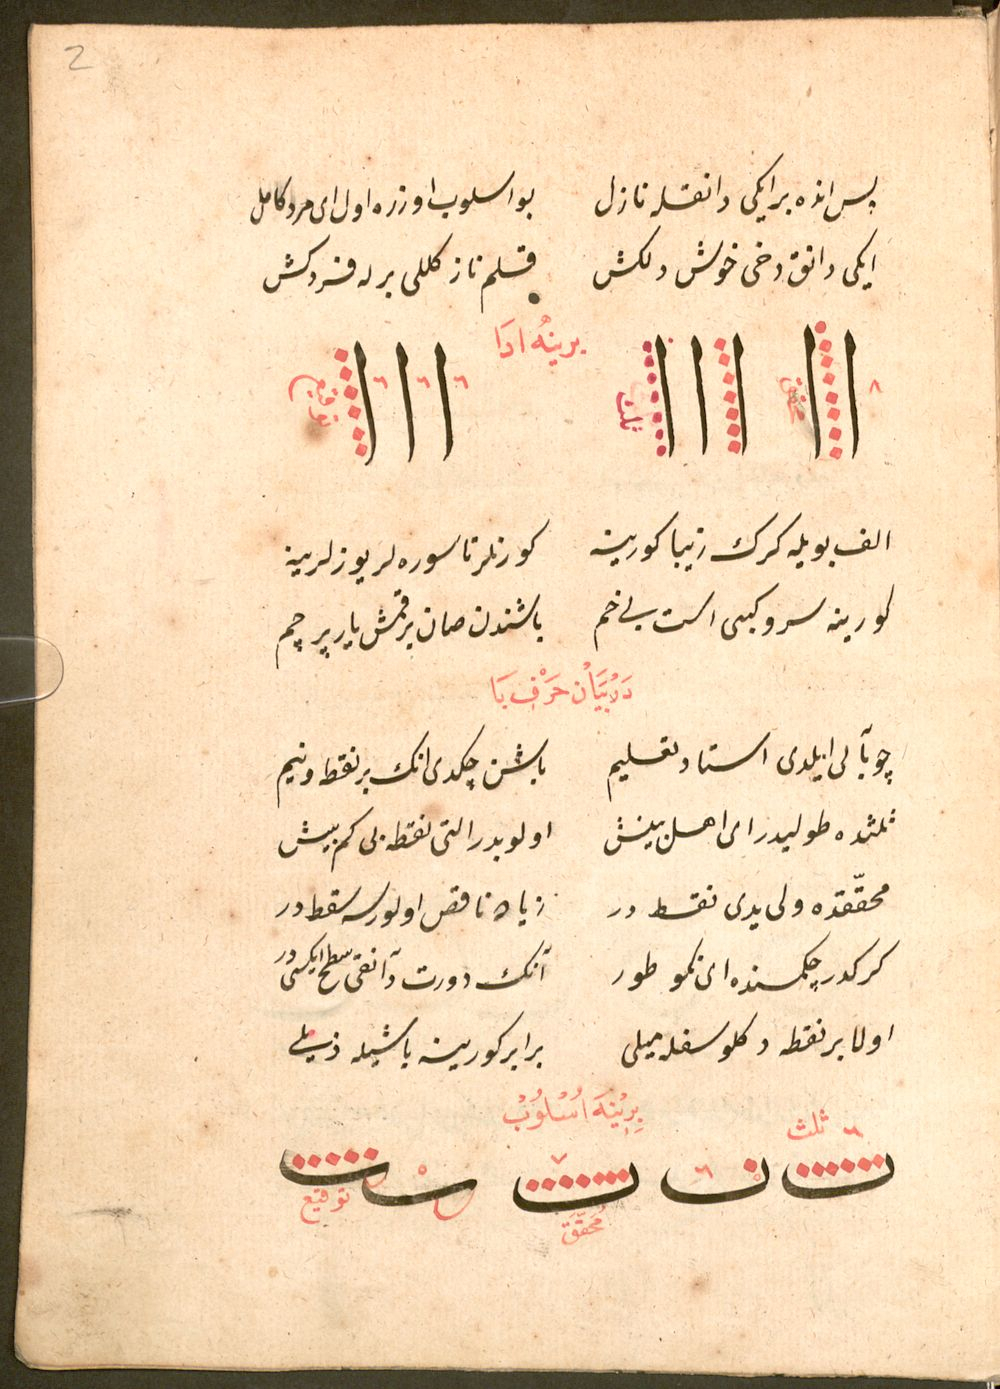 2
پس انده بر ایکی دانقله نازل بو اسلوب اوزره اول ای مرد کامل
ایکی دانق دخی خوش دلکش قلم ناز کللی بر له فرو کش
برینه ادا
٨ محقق ثلث ٦ ٦ ٦ توقیع
الف بویله کرک زیبا کورینه کورنلر تا سوره لر یوزلرینه
کورینه سرو کبی است بی خم باشندن صان برقمش یار پرچم
در بیان حرف با
چو بآ لی ایلدی استاد تعلیم باشن چکدی انک بر نقطه و نیم
ثلثده طولیدر ای اهل بینش اولوبدر التی نقطه بی کم بیش
محقّقده ولی یدی نقطه در زیاده ناقص اولورسه سقطدر
کرکدر چکمسنده ای نکو طور آنک دورت دآنقی سطح ایکسی در
اولا بر نقطه دکلو سفله میلی برابر کورینه باشیله ذیلی
برینه اسلوب
٦ ثلث ٦ ٧ محقّق ٥ توقیع